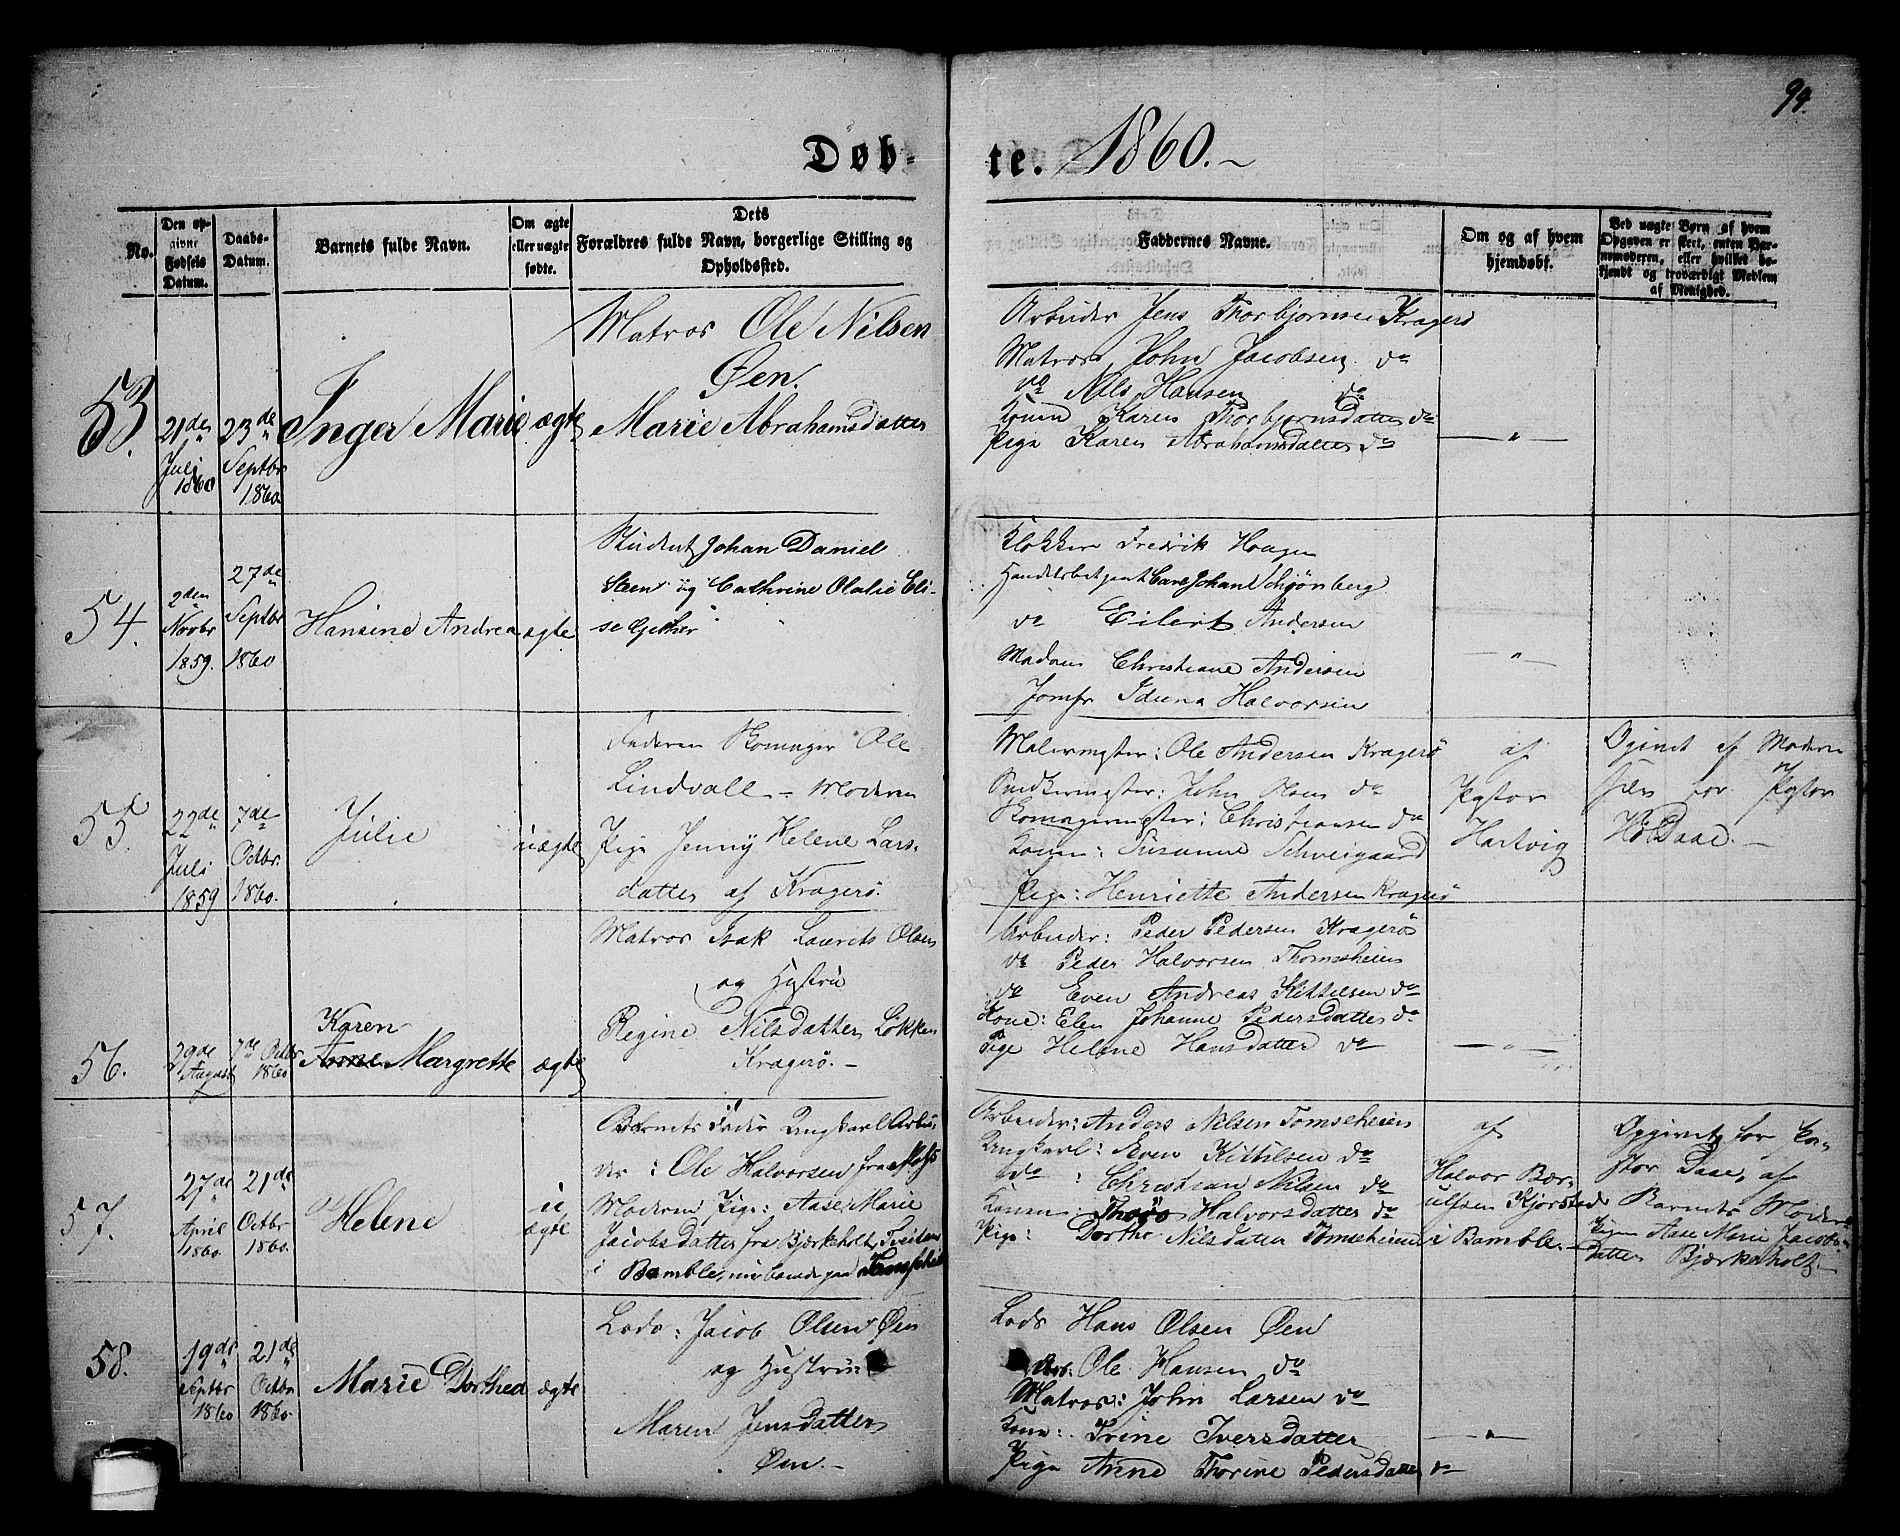 94.
Døb-
te. 1860.
No.
Den op-
givne
Fødsels
Datum.
Daabs-
Datum.
Barnets fulde Navn.
Om ægte
eller uægte
fødte.
Dets
Forældres fulde Navn, borgerlige Stilling og
Opholdssted.
Faddernes Navne.
Om og af hvem
hjemdøbt.
Ved uægte Børn af hvem
Opgaven er skeet, enten Bar-
nemoderen, eller hvilket be-
kjendt og troværdigt Medlem
af Menighed.
53.
21de
Juli
1860
23de
Septbr
1860.
Inger Marie
ægte
Matros Ole Nilsen
Øen.
Marie Abrahamsdatter
Arbeider Jens Thorbjørnsen Kragerö
Matros John Jacobsen do
do Nils Hansen do
Konen Karen Thorbjørnsdatter do
Pige Karen Abrahamsdatter do
— " —
54.
2den
Novbr
1859.
27de
Septbr
1860
Hansine Andrea
ægte
Student Johan Daniel
Steen og Cathrine Olalie Eli-
se Gether
Klokker Fredrik Haagen
Handelsbetjent Carl Johan Schjönberg
do Eilert Andersen
Madam Christiane Andersen
Jomfr Iduna Halvorsen
— " —
55.
22de
Juli
1859
7de
Octbr.
1860.
Julie
uægte
Faderen Skomager Ole
Lindvall — Moderen
Pige Jenny Helene Lars-
datter af Kragerö.
Malermester: Ole Andersen Kragerö
Snedkermester: John Olsen do
Skomagermester: Christiansen do
Konen: Susanne Schweigaard
Pige: Henriette Andersen Kragerö
af
Pastor
Hartvig
Ogivet af Moderen
selv for Pastor
Daae. —
56.
29de
August
7de Octbr
1860
Karen
Anne Margrethe
ægte
Matros Isak Laurits Olsen
og Hustru
Regine Nilsdatter Løkken
Kragerø. —
Arbeider: Peder Pedersen Kragerö
do Peder Halvorsen Thomesheien
do Even Andreas Kittilsen do
Kone: Elen Johanne Pedersdatter do
Pige Helene Hansdatter do
— " —
57.
27de
April
1860.
21de
Octbr
1860.
Helene
u
ægte
Barnets Fader Ungkarl Arbei-
der: Ole Halvorsen fra
Moderen Pige: Aase Marie
Jacobsdatter fra Bjærkeholt, Tveiten
i Bamble, nu bænde paa
Arbeider: Anders Nilsen Tomseheien
Ungkarl: Even Kittilsen do
do : Christian Nilsen do
Konen Halvorsdatter do
Pige: Dorthe Nilsdatter Tomseheien
af
Halvor Bær-
ulfsen Kjørstad
i Bamble. —
Opgivet for Pa-
stor Daae, af
Barnets Moder
Pigen Aase Marie Jacobs-
datter Bjærkeholt. —
58.
19de
Septbr
1860
21de
Octbr
1860.
Marie Dorthea
ægte
Lods: Jacob Olsen Øen
og Hustru:
Maren Jensdatter
Øen. —
Lods Hans Olsen Øen
Arb: Ole Hansen do
Matros: John Larsen do
Kone: Trine Iversdatter
Pige Anne Thorine Pedersdatter do
— " —